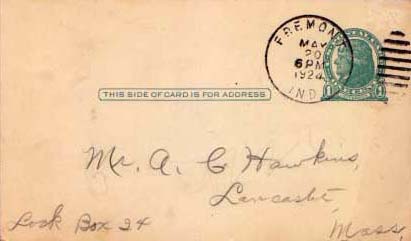 FREMONT
MAY
20
6 PM
1924
IND.
THIS SIDE OF CARD IS FOR ADDRESS
Mr. A. C Hawkins,
Lancaster,
Mass,
Lock Box 24